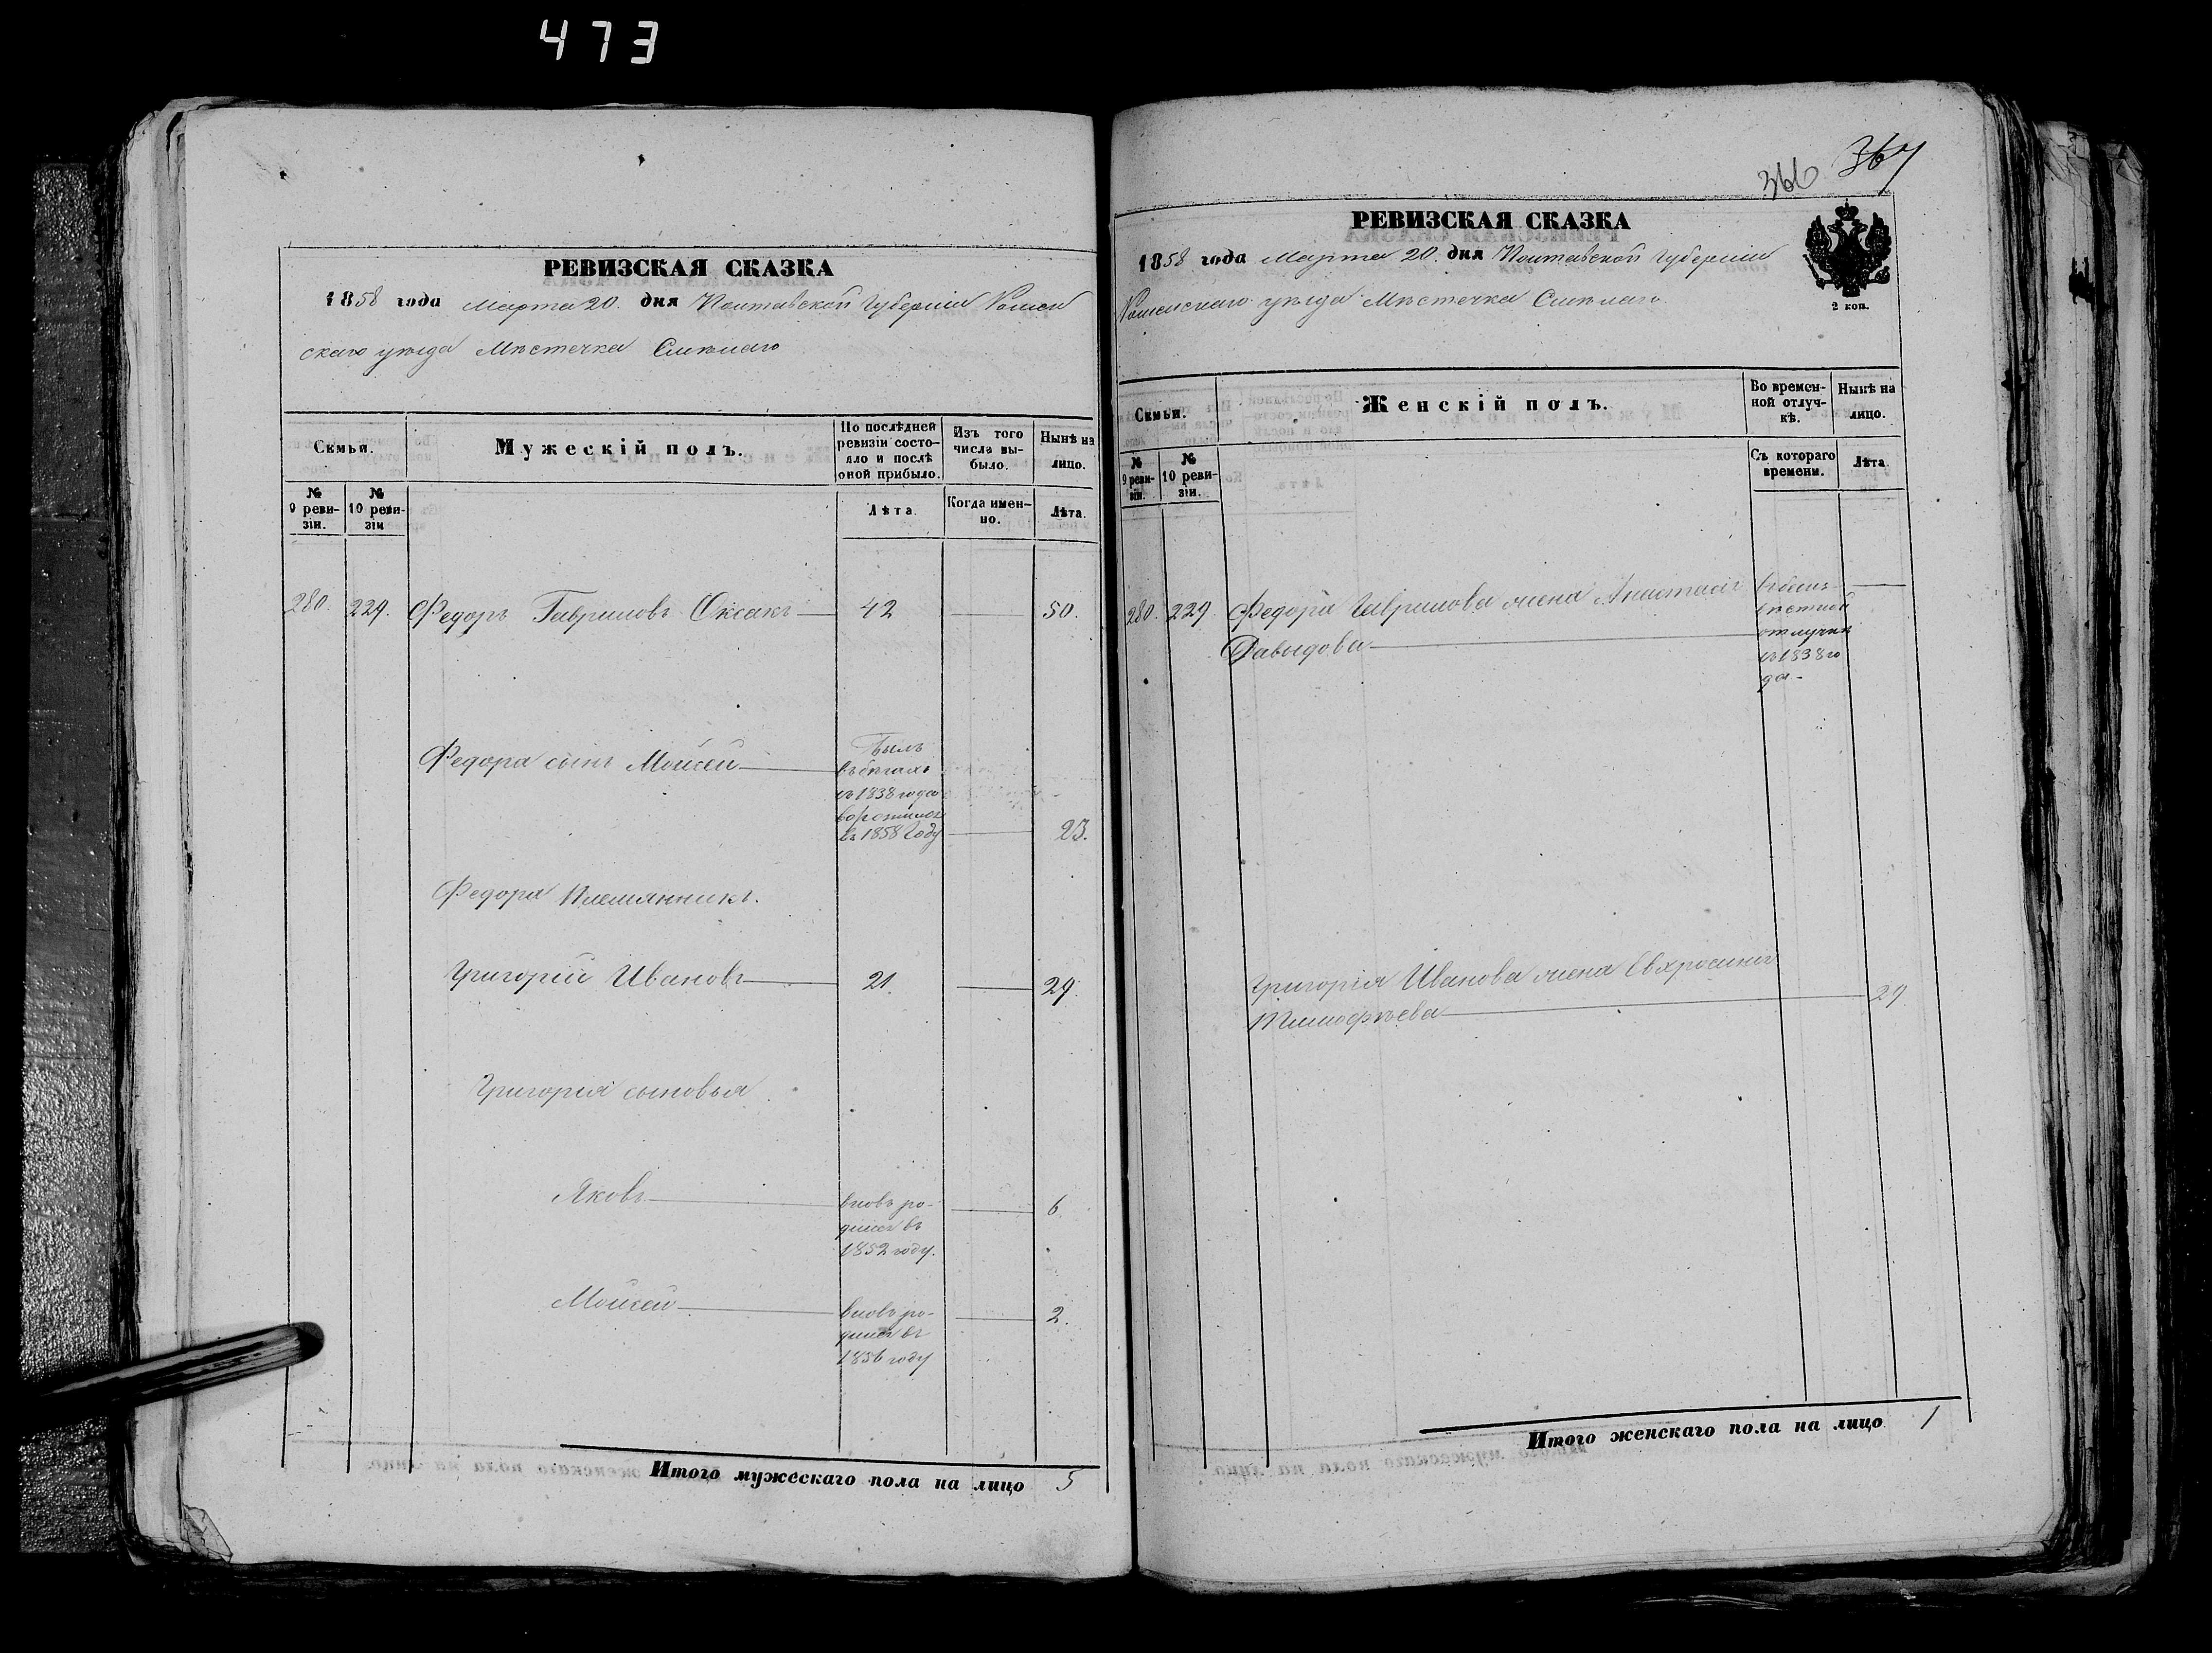 473
РЕВИЗСКАЯ СКАЗКА
1858 года Марта 20. дня Полтавской Губерніи Ромен
скаго уѣзда Мѣстечка Смѣлаго
Семьи.
Мужескій полъ.
По послѣдней ревизіи состояло и послѣ оной прибыло.
Изъ того числа выбыло.
Нынѣ на лицо.
№ 9 ревизіи.
№ 10 ревизіи
Лѣта.
Когда именно.
Лѣта.
280. 229. Федоръ Гавриловъ Оксакъ 42 50.
Федора сынъ Мойсей
былъ
въ бѣгахъ
съ 1838 года
въ 1858 году 23.
Федора Племянникъ.
Григорій Ивановъ 21. 29.
Григорія сыновья
Яковъ вновь ро- 6.
дился въ
1852 году.
Мойсей вновь ро- 2.
дился въ
1856 году
Итого мужескаго пола на лицо 5
366 367
РЕВИЗСКАЯ СКАЗКА
1858 года Марта 20. дня Полтавской Губерніи
Роменскаго уѣзда Мѣстечка Смѣлаго
2 коп.
Семьи.
Женскій полъ.
Во временной отлучкѣ.
Нынѣ на лицо.
№ 9 ревизіи.
№ 10 ревизіи.
Съ котораго времени.
Лѣта.
280. 229. Федора Гаврилова жена Анастасія
Давыдова
отлучкѣ
съ 1838 го
да
Григорія Иванова жена Евфросинія
Тимофѣева 29.
Итого женскаго пола на лицо 1